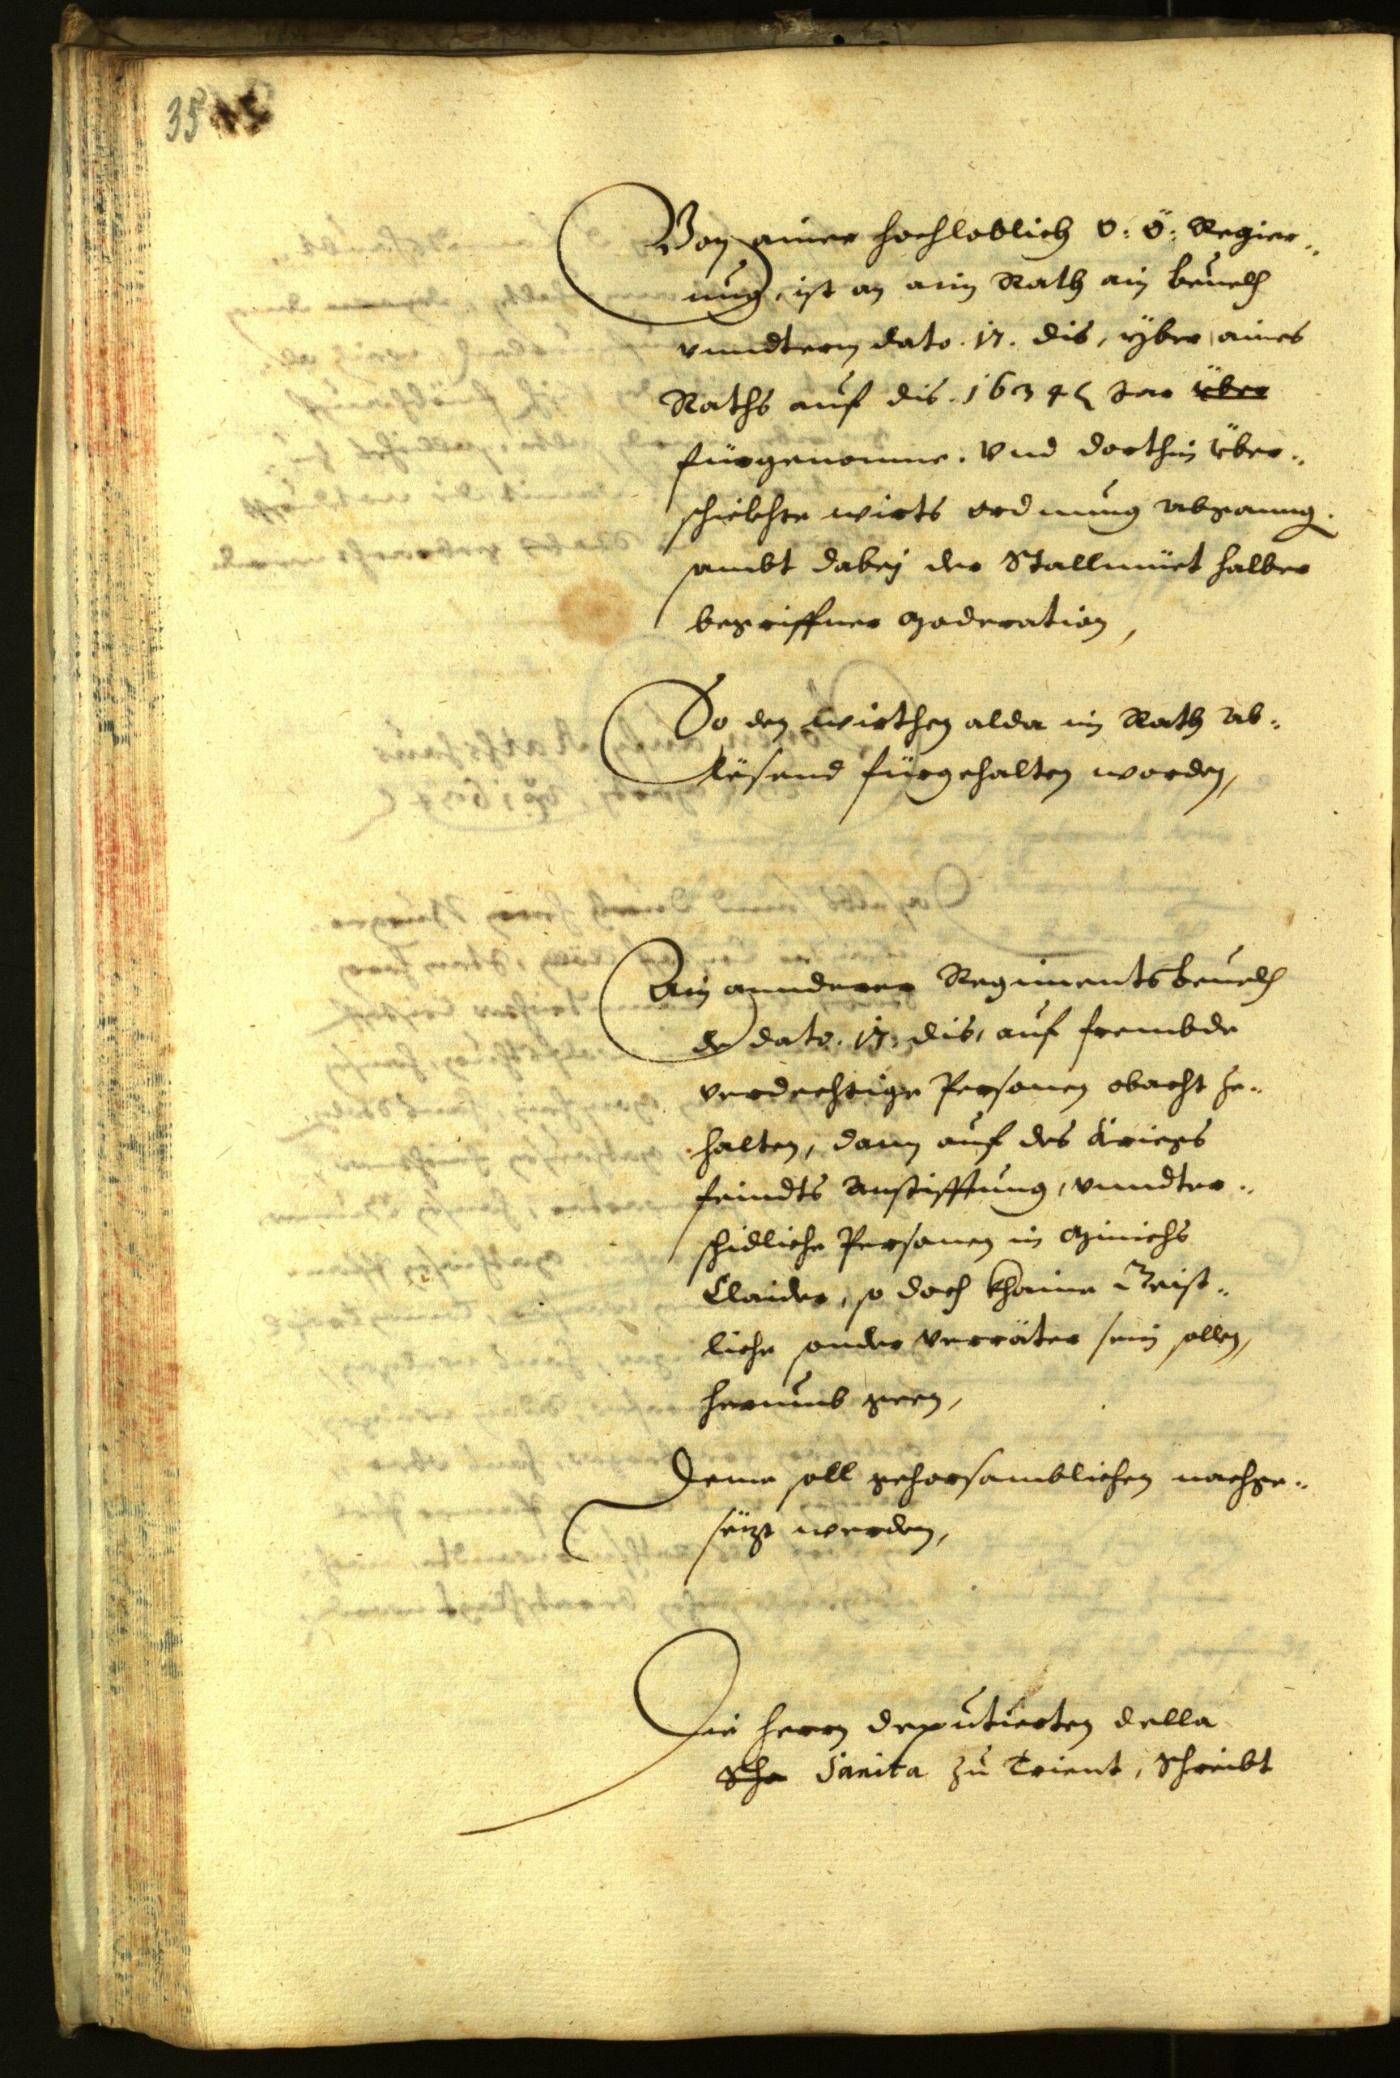 35
Von ainer hochloblich O: Ö: Regier„
ung, ist an ain Rath ain beuelch
vnndterm dato. 17. dis, yber aines
Raths auf dis 1634 Jar über
fürgenomne. Vnd dorthin über„
schickhte wirts ordnung abgang.
sambt dabey der Stallmüet halber
begriffner Moderation,
So den Wirthen alda im Rath ab„
lesend fürgehalten worden,
Ain annderer Regiments beuelch
de dato. 17. dis, auf frembde
verdechtige Personen obacht ze„
halten, dann auf des Kriegs
feindts Anstifftung, vnndter„
schidliche Personen in Minichs
Claider, so doch khaine Geist„
liche sonder Verräter sein sollen,
herumb geen,
Deme soll gehorsamblichen nachge„
sezt werden,
Die herrn deputierten della
Sanita zu Trient, Schreibt